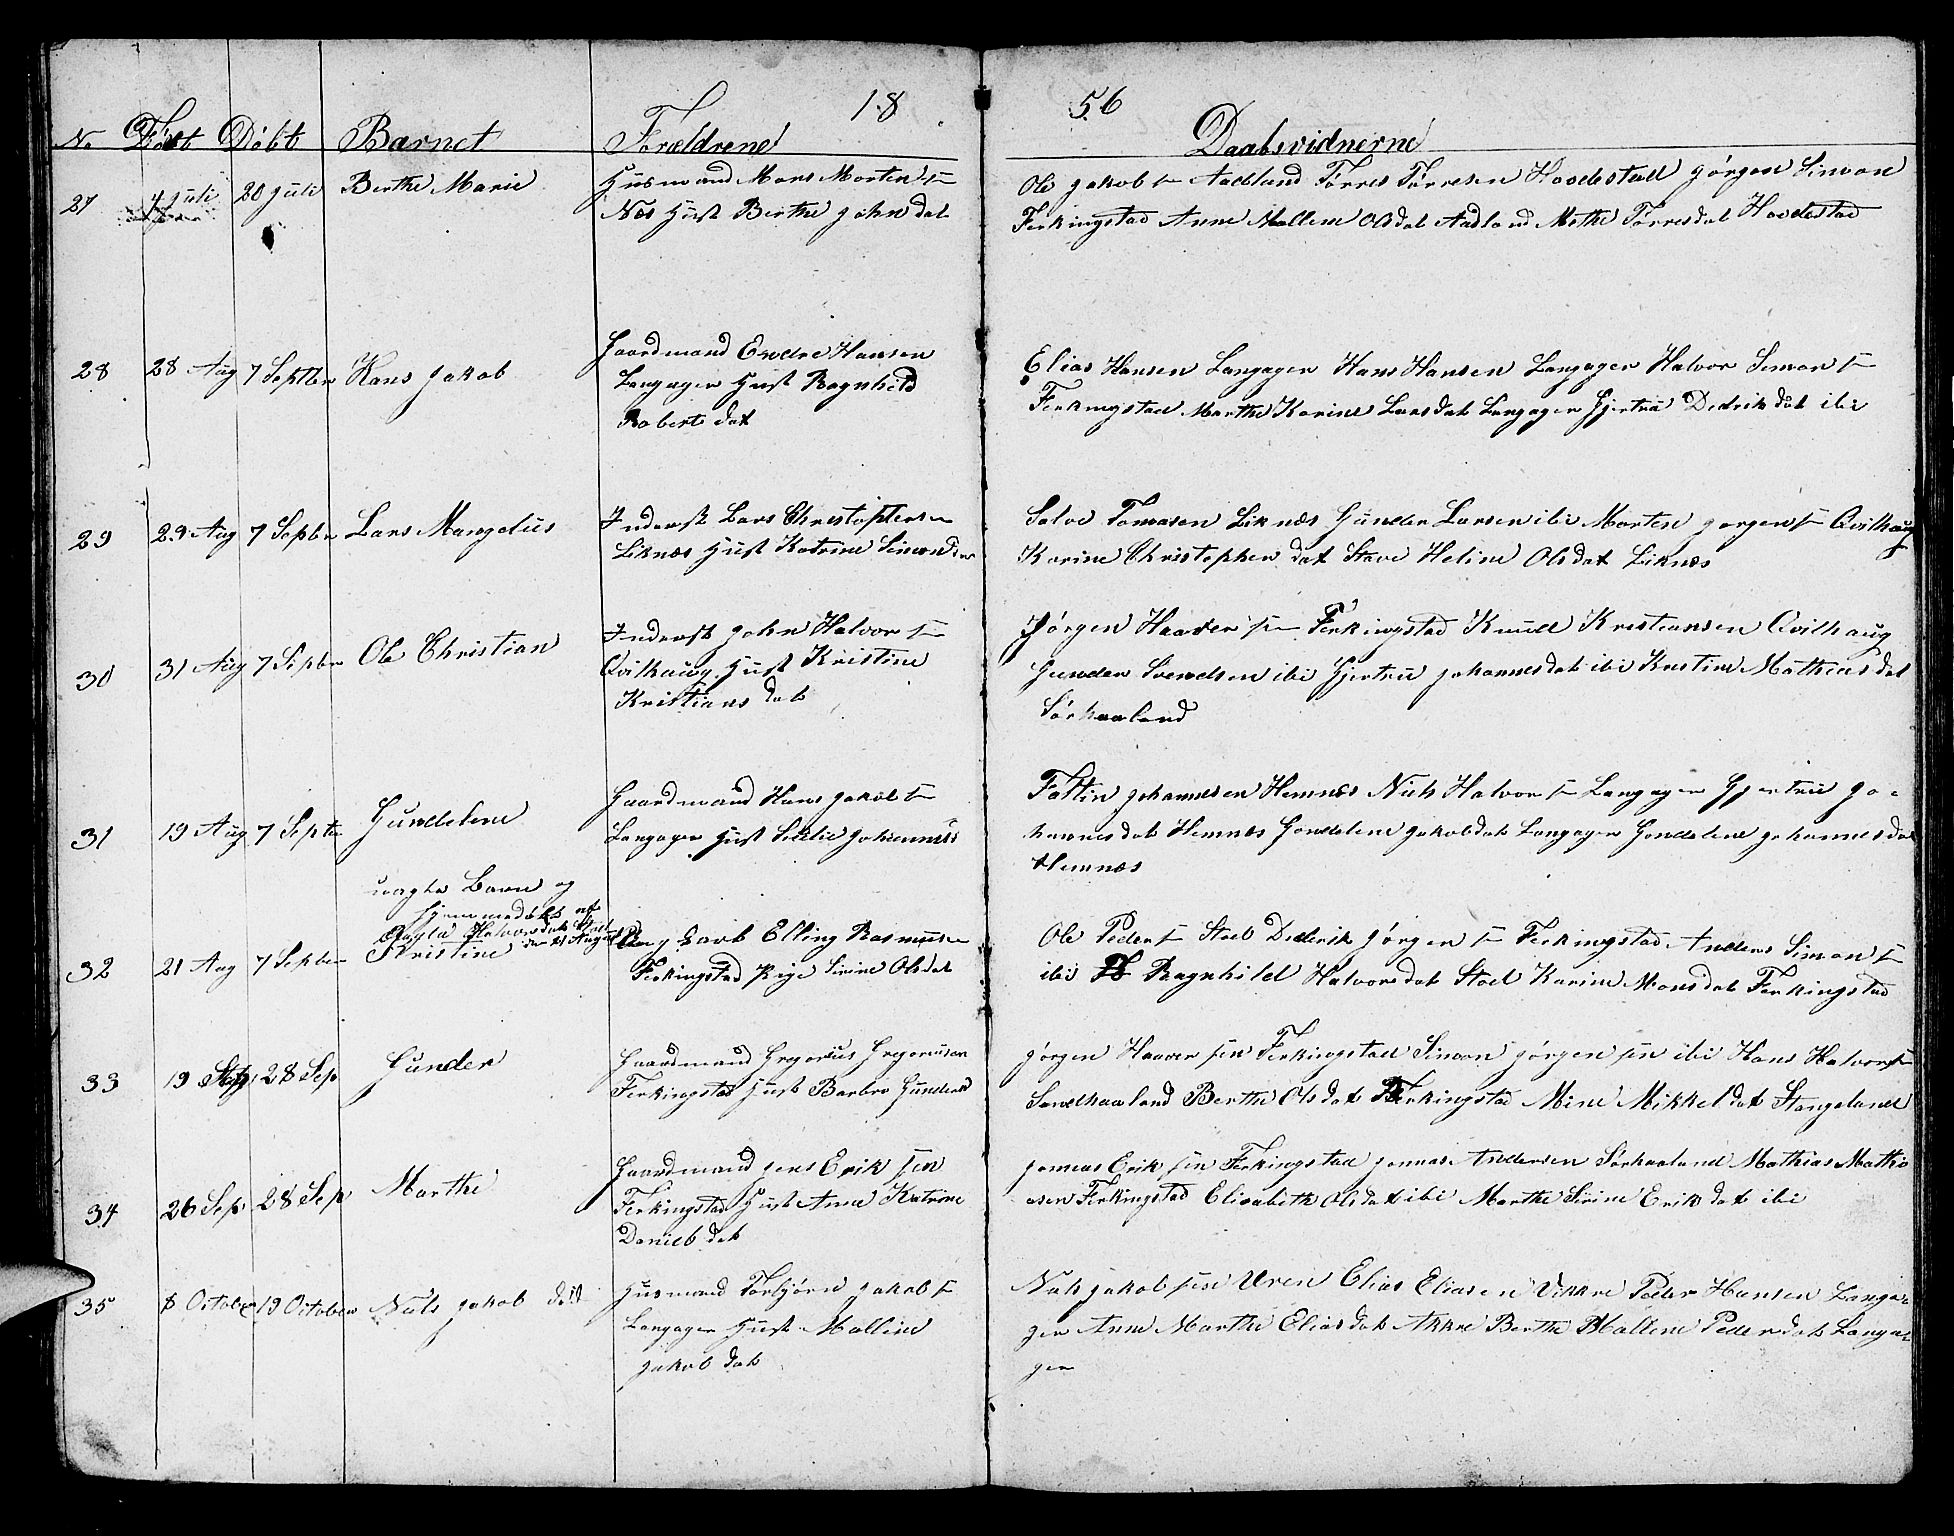 18 56
No Født Døbt Barnet Forældrene Daabsvidnerne
27 4 Juli 20 Juli Berthe Marie Huusmand Mons Morten sen
Næs Hust Berthe John dat
Ole Jakob sen Aadland Tørres Tørresen Hovdestad Jørgen Simon
Ferkingstad Anne Mallene Olsdat Aadland Marthe Tørresdat Hovdestad
28 28 Aug 7 Septbr Hans Jakob Gaardmand Endre Hansen
Langager Hust Ragnhild
Roberts dat
Elias Hansen Langager Hans Hansen Langager Halvor Simon sen
Ferkingstad Marthe Karine Larsdat Langager Gjertru Dedrik dat ibi
29 29 Aug 7 Septbr Lars Mangelius Inderst Lars Christophersen
Liknæs Hust Katrine Simonsdat
Salve Tomasen Liknæs Gunder Larsen ibi Morten Jørgen sen Qvilhaug
Karine Christopher dat Stave Heline Olsdat Liknæs
30 31 Aug 7 Septbr Ole Christian Inderst John Halvor sen
Qvilhaug Hust Kristine
Kristians dat
Jørgen Haaver sen Ferkingstad Knud Kristiansen Qvilhaug
Gunder Svendsen ibi Gjertru Johannesdat ibi Kristine Mathias dat
Sørhaaland
31 19 Aug 7 Septbr Gundelene Gaardmand Hans Jakob sen
Langager Hust Johannesd
Johannesen Hemnæs Niels Halvor sen Langager Gjertru Jo-
hannesdat Hemnæs Gondelene Jakobdat Langager Gondelene Johannesdat
Hemnæs
uægte Barn og
hjemmedøbt af
Halvorsdat
Kristine den 21 August
32 21 Aug 7 Septber Ung Karl Elling Rasmussen
Ferkingstad Pige Sirine Olsdat
Ole Peder sen Stol Diderik Jørgen sen Ferkingstad Anders Simon sen
ibi Ragnhild Halvorsdat Stol Karine Monsdat Ferkingstad
33 19 Sep 28 Sep Gunder Gaardmand Gregorius Gregoriusen
Ferkingstad Hust Barbro Gundersd
Jørgen Haaver sen Ferkingstad Simon Jørgen sen ibi Hans Halvorsen
Sandhaaland Berthe Olsdat Ferkingstad Mine Mikkel dat Stangeland
34 26 Sep 28 Sep Marthe Gaardmand Jens Erik sen
Ferkingstad Hust Anne Katrine
Daniels dat
Jonnas Erik sen Ferkingstad Jonnas Andersen Sørhaaland Mathias Mathi
asen Ferkingstad Elisabeth Olsdat ibi Marthe Sirine Erik dat ibi
35 8 October 19 October Niels Jakob død Huusmand Torbjørn Jakob sen
Langager Hust Mallene
Jakob dat
Niels Jakob sen Uren Elias Eliasen Vikre Peder Hansen Langa-
ger Anne Marthe Eliasdat Berthe Mallene Peder dat Langa-
ger